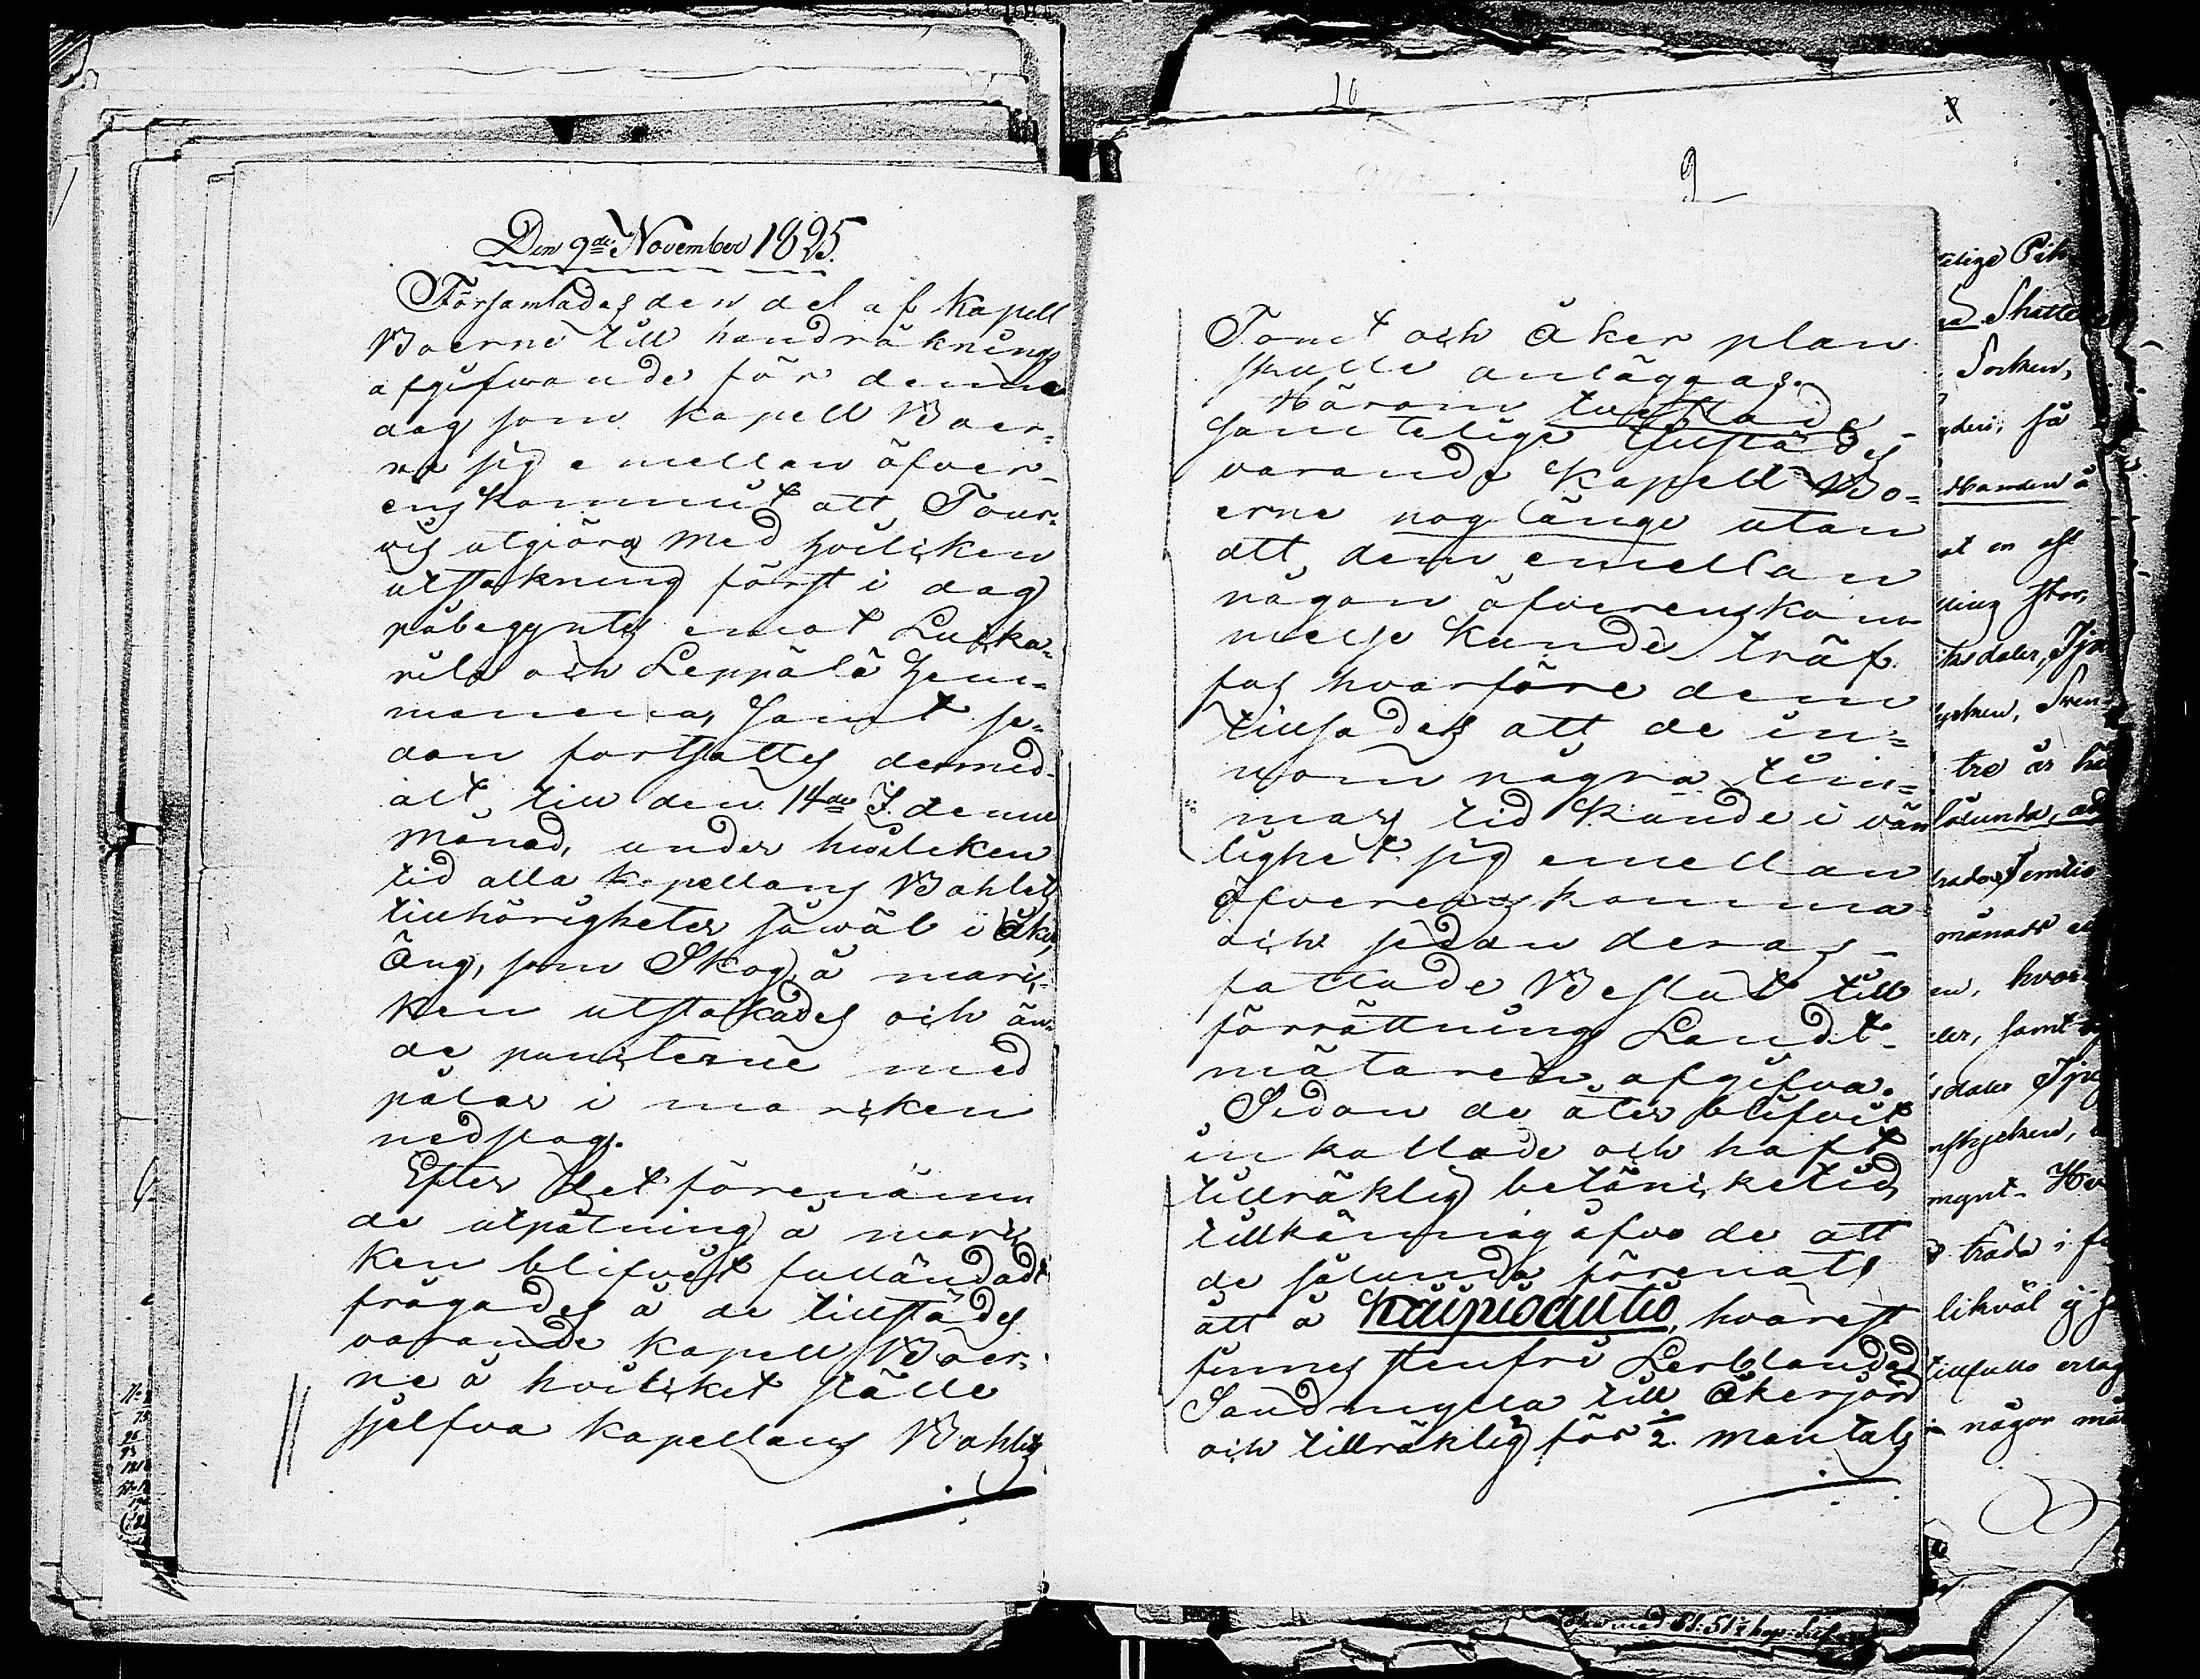 Den 9de November 1825.
Församlades den del af Kapell
Boerne till handräknings
afgifwande för denna
dag som kapell Boer-
ne sig emellan öfver-
enskommit att Tour-
vis utgiöra med hvilcken
utstakning först i dag
påbegyntes emot Luska-
nila och Leppälä Hem-
manena, samt se-
dan fortsattes dermed
alt till den 14de I denne
månad, under hvilcken
tid alla kapellans Bohlets
tillhörigheter såwäl i Åker,
Äng, som Skog å marc-
ken utstakades och än-
de puncterne med
pålar i marcken
nedslag.
Efter det förenämn
de utpålning å marc
ken blifvit fulländadt
frågades å de tillstädes
varande kapell Boer-
ne å hvilcket ställe
sjelfva kapellans Bohlets
10
9
Tomt och Åker plan
skulle anläggas.
Härom tvistade
samtelige tillstädes
varande Kapell Bo-
erne nog länge utan
att dem emellan
någon öfverenskom
melse kunde träf
fas hvarföre dem
tillsades att de in-
nom några tim-
mars tid kunde i vän
lighet sig emellan
öfverens komma
och sedan deras
fattade Beslut till
förrättnings Landt-
mätaren afgifva.
Sedan de åter blifvit
inkallade och haft
tillräklig betänicketid,
tillkännagåfvo de att
de sålunda förenats
att å Käupiöautio, hvarest
finnes stenfri Lerblandad
Sandmylla till Åkerjord
och tillräklig för 1/2 mantals
telige
Skatte
Socken,
så
Handen å
at en
ning stor,
daler,
tre år
lälunda,
månads
en, hvar
samt
daler
träda i
likväl ej
tillfullo erlag
någor